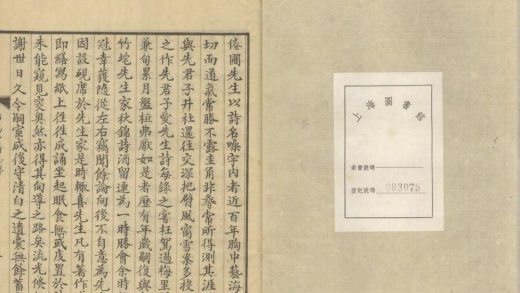 倦圃先生以詩名噪宇内者近百年胸中藝海
切而道氣常勝不露圭角非尋常所得測其涯
與先君子幷社還往交深把臂風窗雪案多授
之作先君子愛先生詩每錄之審枉駕過梅里
兼旬累月盤桓弗厭如是者歷有年歲嗣復與
竹垞先生家秋錦詩酒留連為一時勝會余時
冠幸獲隨從左右竊聞餘論向後不自意為先
因設硯席於先生家是時輒喜先生凡有著作
即繕寫紙上往往成誦坐起眠食無或庋置於
未能窺見突奧然亦得其向導之路矣流光倏
謝世日久令嗣寰成復守清白之遺囊無餘蓄
上海圖書館
索書號碼
登記號碼 003075